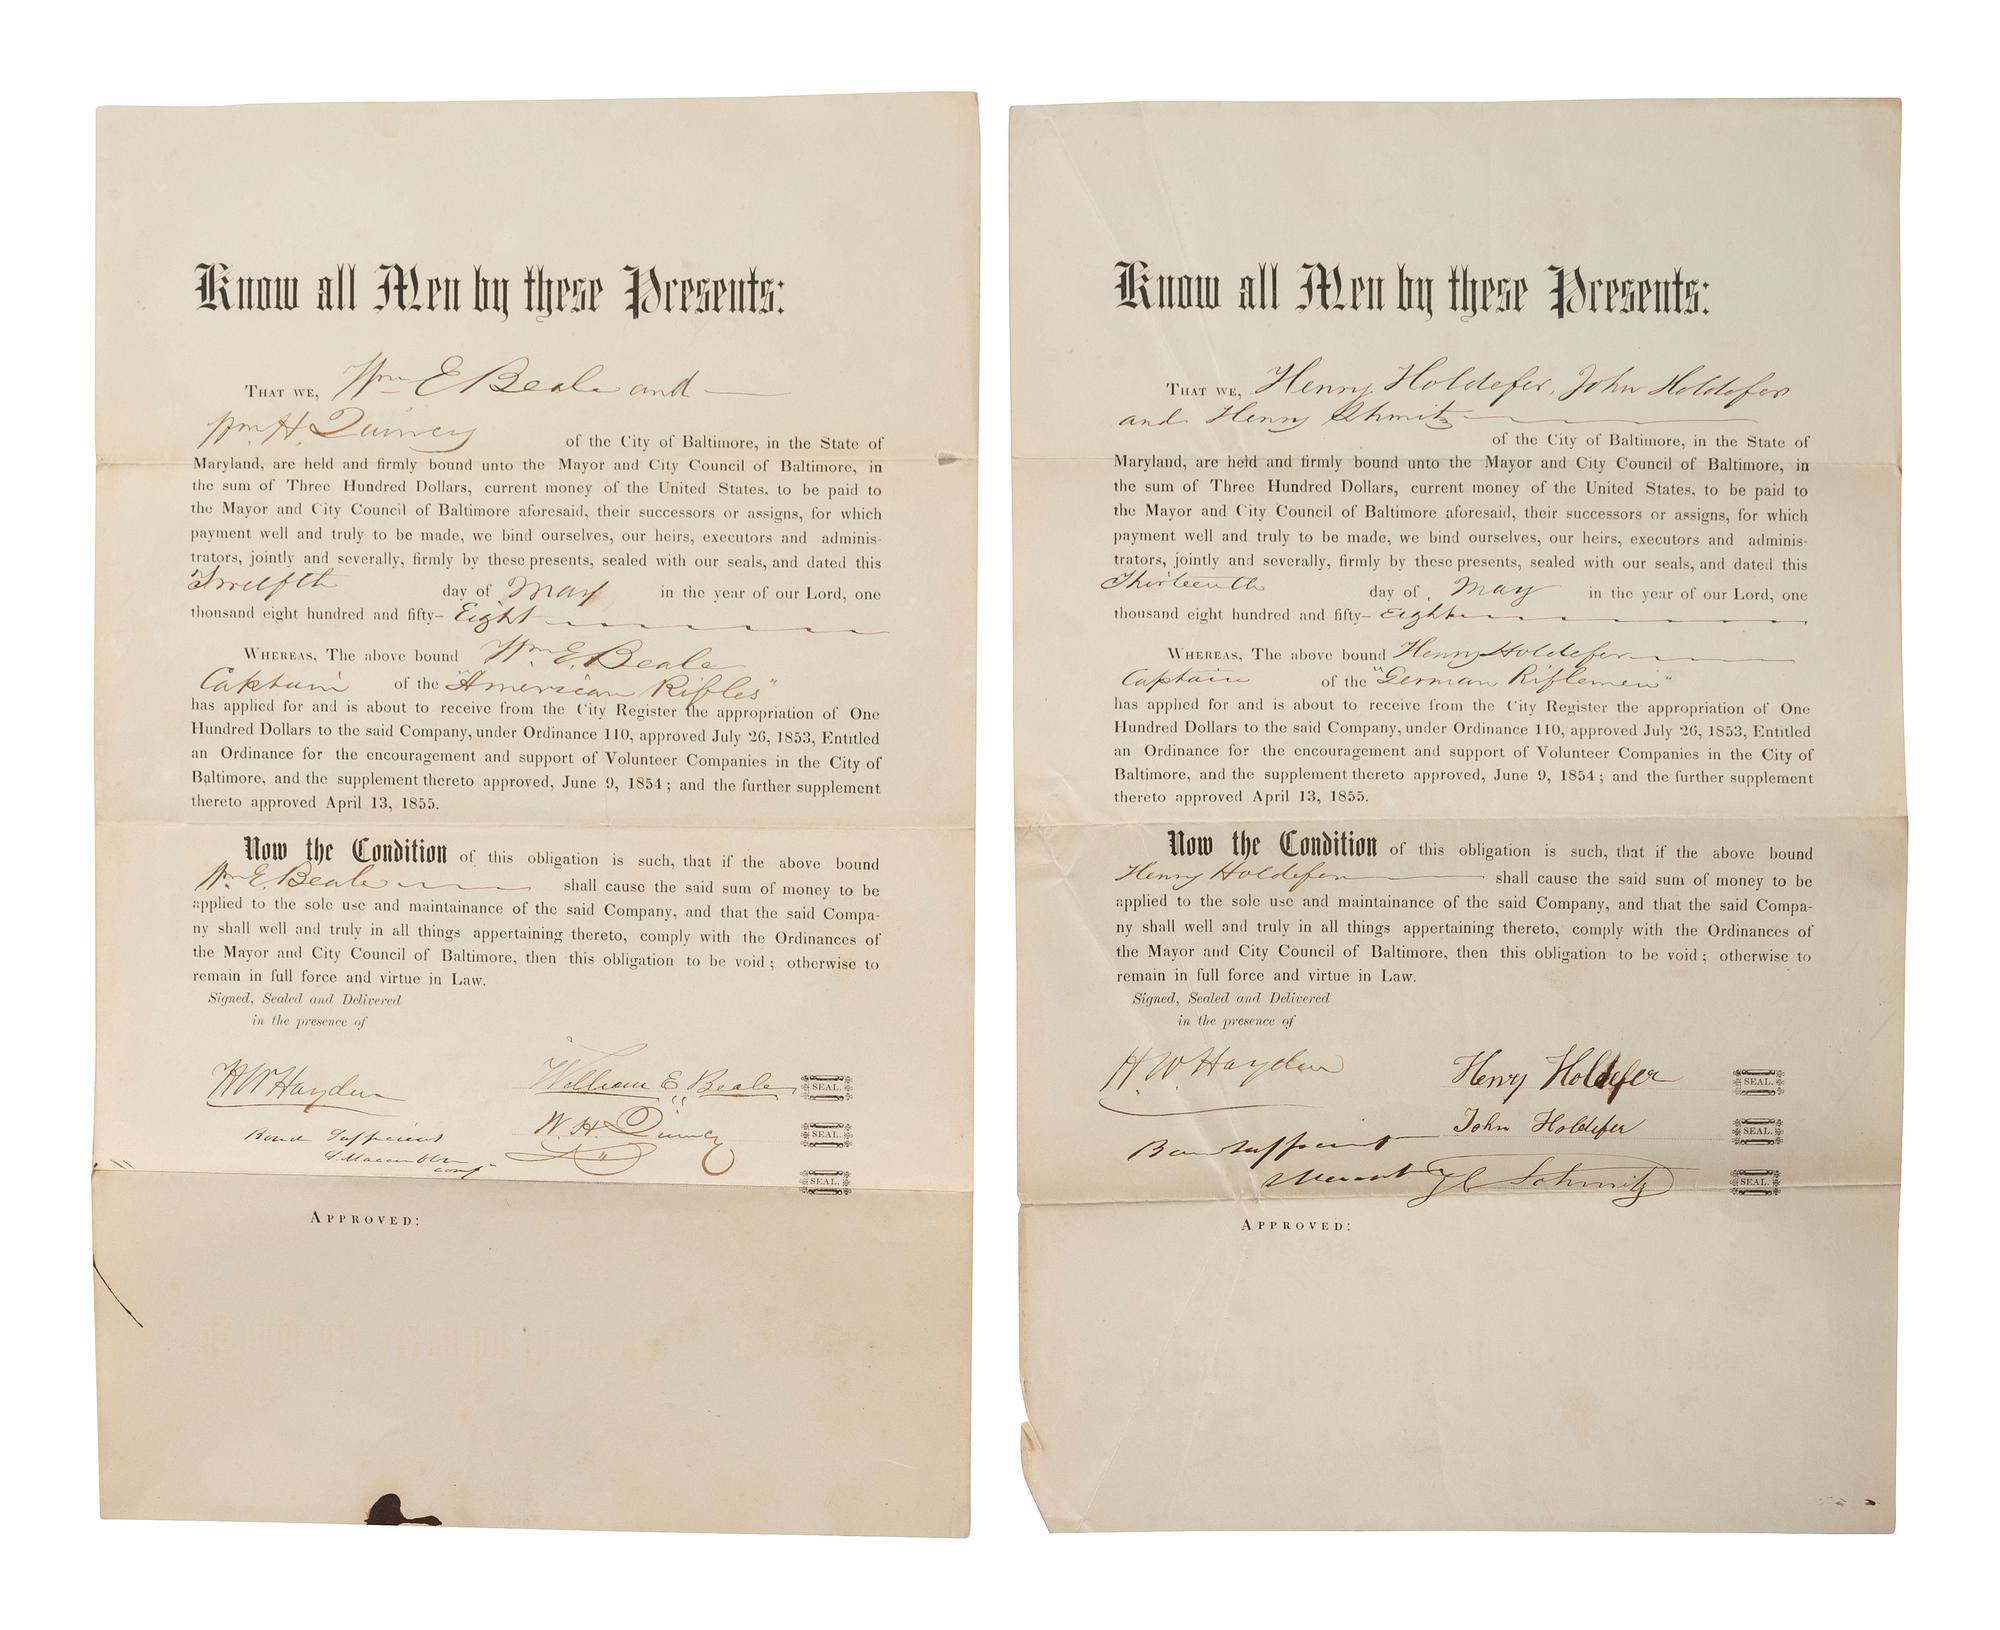 Know all Men by these Presents:
THAT WE, Wm E Beale and
Wm. H. Quincy of the City of Baltimore, in the State of
Maryland, are held and firmly bound unto the Mayor and City Council of Baltimore, in
the sum of Three Hundred Dollars, current money of the United States, to be paid to
the Mayor and City Council of Baltimore aforesaid, their successors or assigns, for which
payment well and truly to be made, we bind ourselves, our heirs, executors and adminis-
trators, jointly and severally, firmly by these presents, sealed with our seals, and dated this
Twelfth day of May in the year of our Lord, one
thousand eight hundred and fifty- Eight
WHEREAS, The above bound Wm. E. Beale
Captain of the "American Rifles"
has applied for and is about to receive from the City Register the appropriation of One
Hundred Dollars to the said Company, under Ordinance 110, approved July 26, 1853, Entitled
an Ordinance for the encouragement and support of Volunteer Companies in the City of
Baltimore, and the supplement thereto approved, June 9, 1854; and the further supplement
thereto approved April 13, 1855.
Now the Condition of this obligation is such, that if the above bound
Wm. E. Beale shall cause the said sum of money to be
applied to the sole use and maintainance of the said Company, and that the said Compa-
ny shall well and truly in all things appertaining thereto, comply with the Ordinances of
the Mayor and City Council of Baltimore, then this obligation to be void; otherwise to
remain in full force and virtue in Law.
Signed, Sealed and Delivered
in the presence of
H W Hayden
William E. Beale SEAL.
W. H. Quincy SEAL.
Bond Sufficient
SEAL.
APPROVED:
Know all Men by these Presents:
THAT WE, Henry Holdefer, John Holdefer
and Henry Schmitz
of the City of Baltimore, in the State of
Maryland, are held and firmly bound unto the Mayor and City Council of Baltimore, in
the sum of Three Hundred Dollars, current money of the United States, to be paid to
the Mayor and City Council of Baltimore aforesaid, their successors or assigns, for which
payment well and truly to be made, we bind ourselves, our heirs, executors and adminis-
trators, jointly and severally, firmly by these presents, sealed with our seals, and dated this
Thirteenth day of May in the year of our Lord, one
thousand eight hundred and fifty- Eight
WHEREAS, The above bound Henry Holdefer
Captain of the "German Riflemen"
has applied for and is about to receive from the City Register the appropriation of One
Hundred Dollars to the said Company, under Ordinance 110, approved July 26, 1853, Entitled
an Ordinance for the encouragement and support of Volunteer Companies in the City of
Baltimore, and the supplement thereto approved, June 9, 1854; and the further supplement
thereto approved April 13, 1855.
Now the Condition of this obligation is such, that if the above bound
Henry Holdefer shall cause the said sum of money to be
applied to the sole use and maintainance of the said Company, and that the said Compa-
ny shall well and truly in all things appertaining thereto, comply with the Ordinances of
the Mayor and City Council of Baltimore, then this obligation to be void; otherwise to
remain in full force and virtue in Law.
Signed, Sealed and Delivered
in the presence of
H. W Hayden
Henry Holdefer SEAL.
John Holdefer SEAL.
Bond sufficient
Schmitz SEAL.
APPROVED: